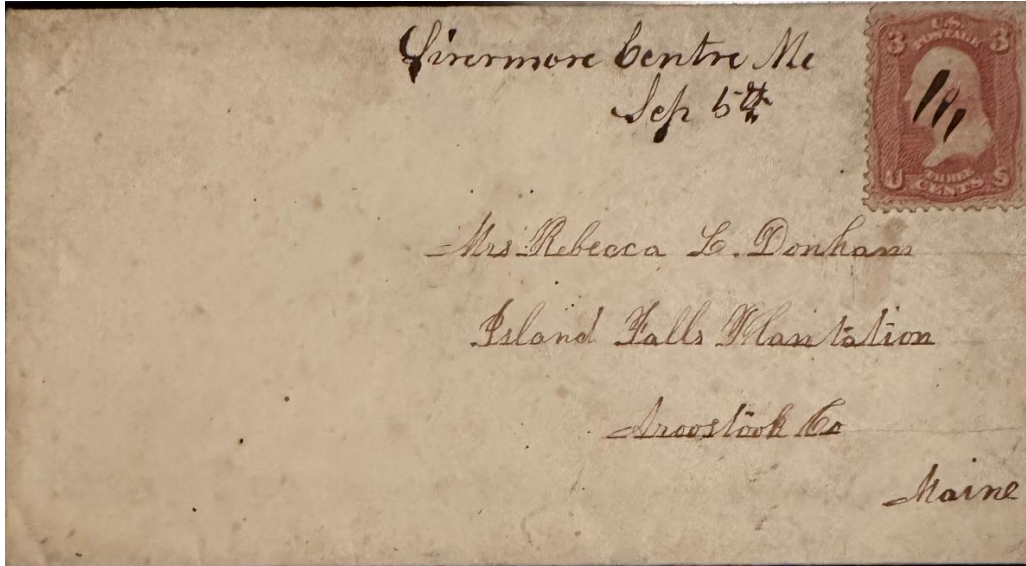 Livermore Centre Me
Sep 5th
U.S.
POSTAGE
3 3
THREE
CENTS
U S
Mrs Rebecca L. Donham
Island Falls Plantation
Aroostook Co
Maine